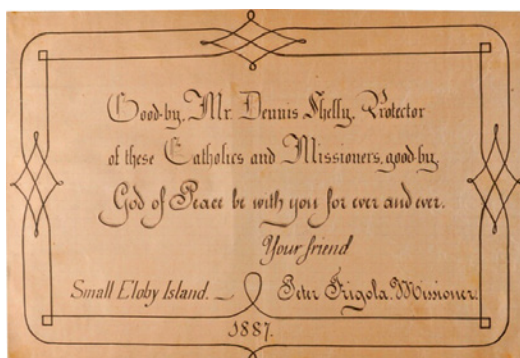 Good-by, Mr. Dennis Shelly, Protector
of these Catholics and Missioners, good-by.
God of Peace be with you for ever and ever.
Your friend
Small Eloby Island. Peter Frigola. Missioner.
1887.